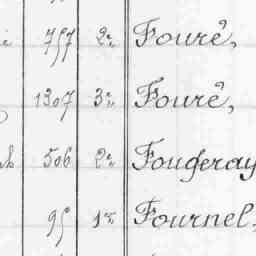 757 2e Fourê,
1307 3e Fourê,
506 2e Fougeray
95 1er Fournel,